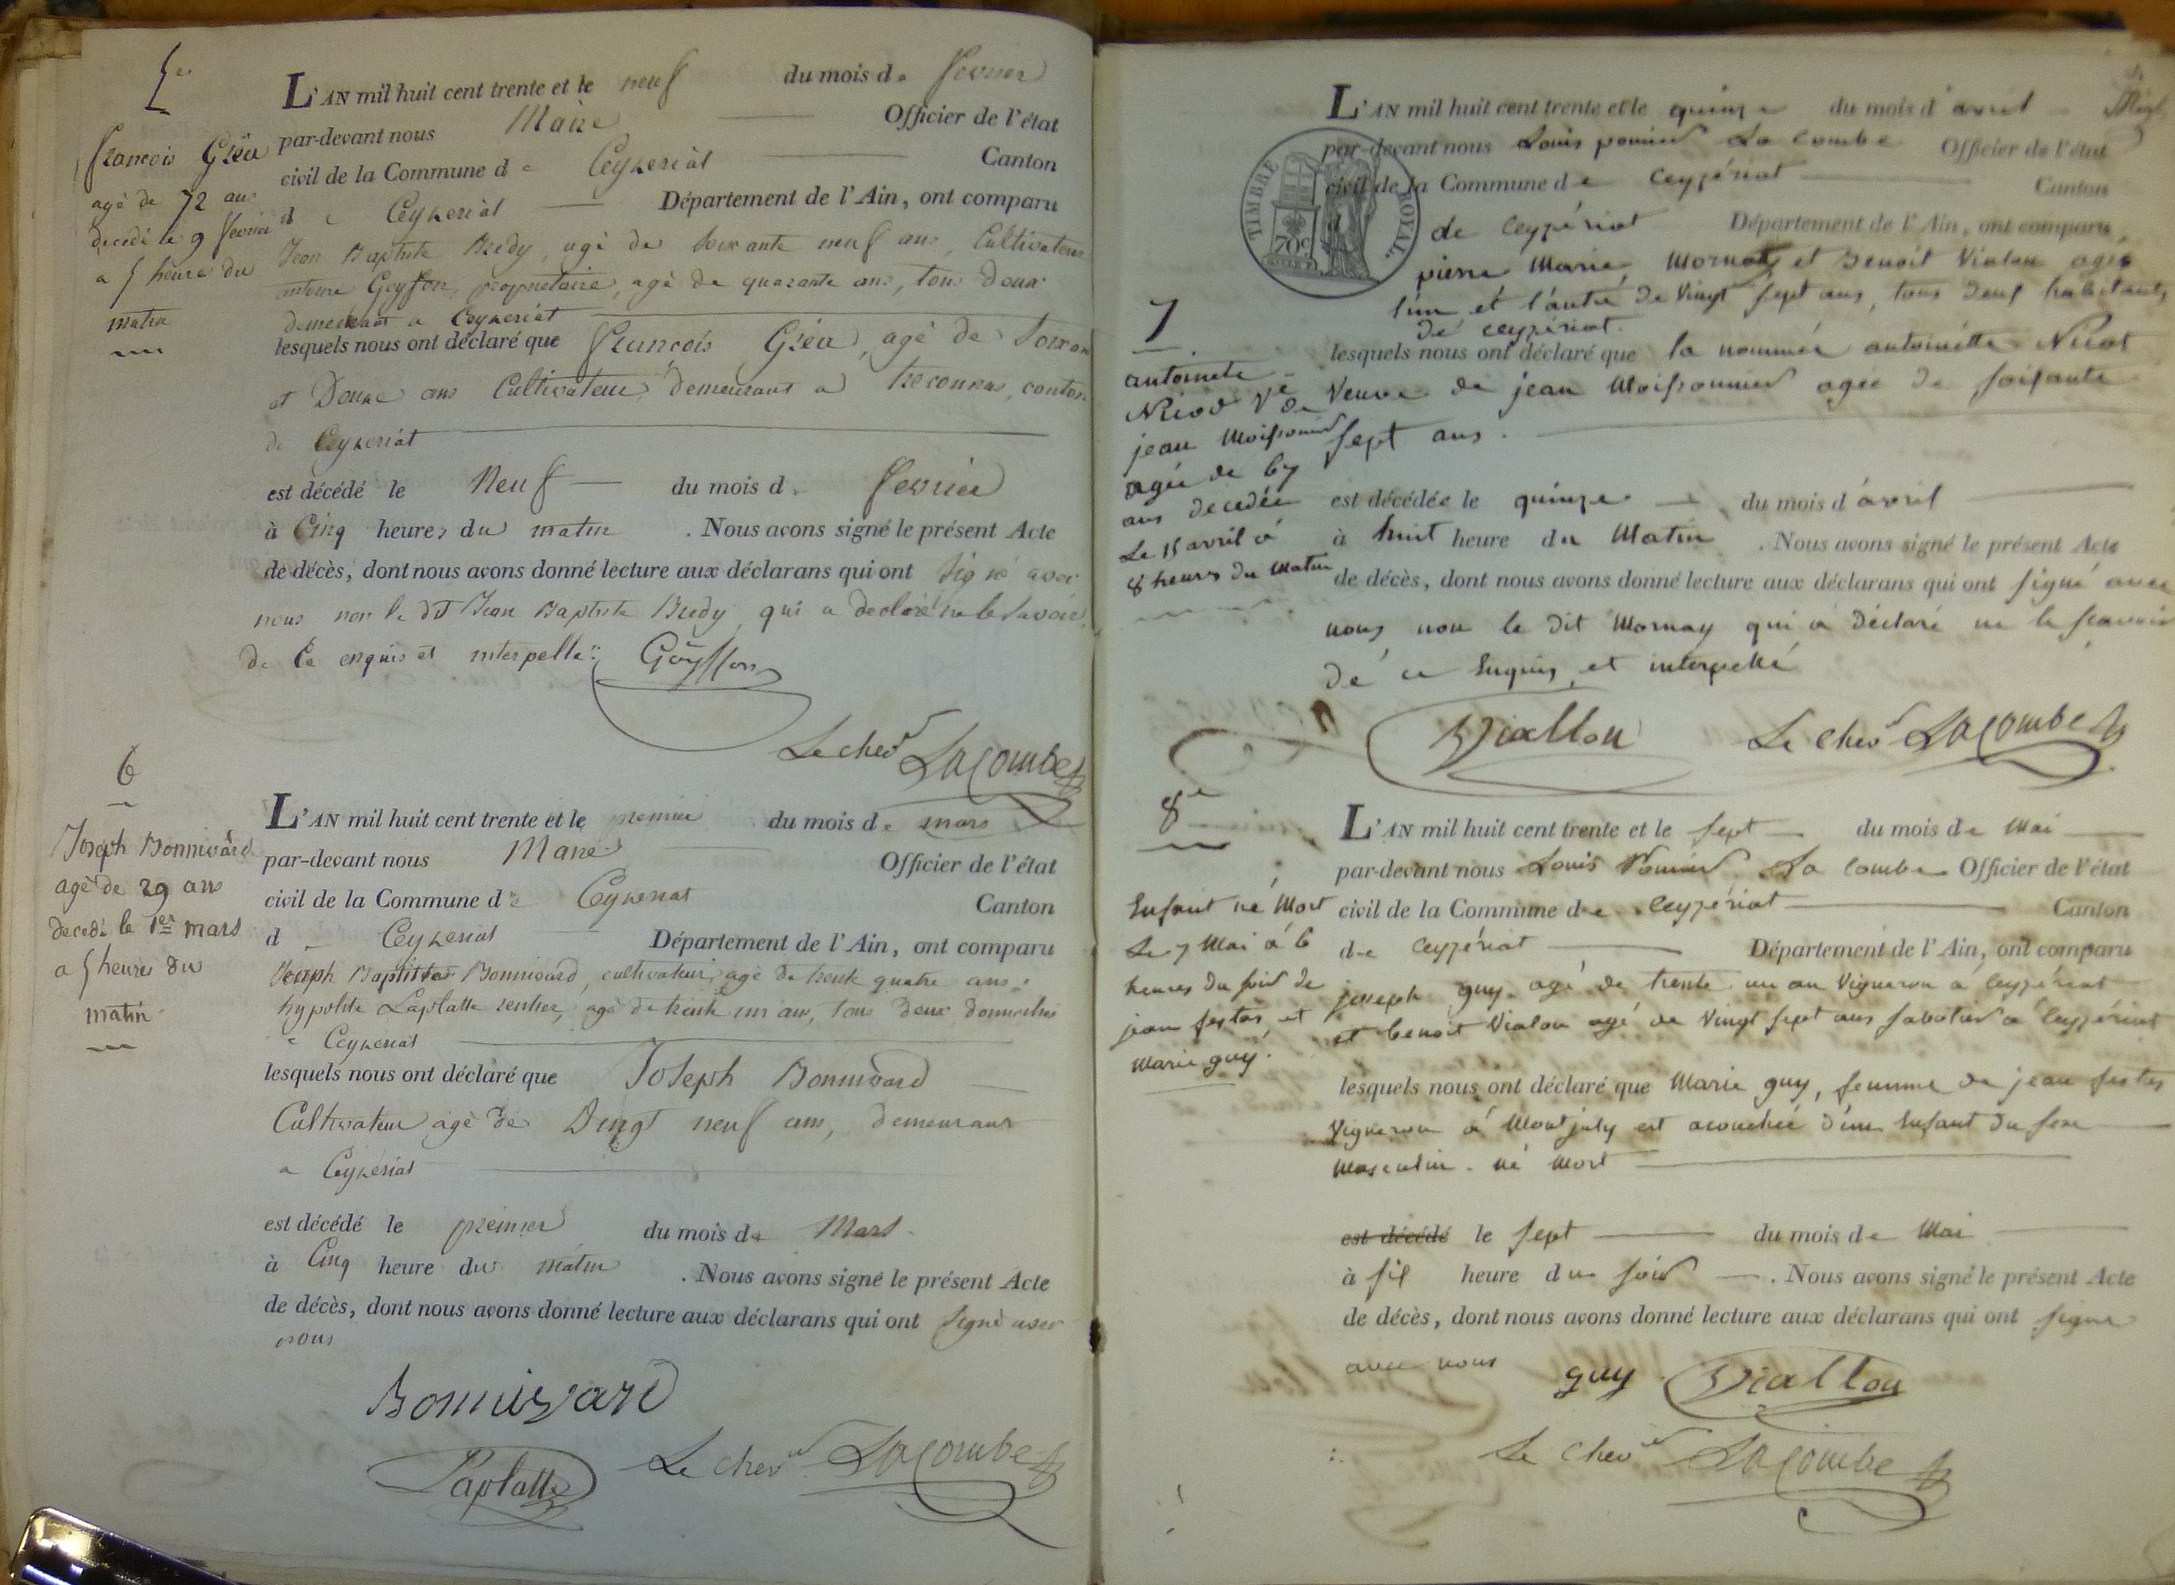 5e
François Gréa
agé de 72 ans
decedé le 9 fevrier
a 5 heures du
matin
L'AN mil huit cent trente et le neuf du mois de fevrier
par-devant nous Maire Officier de l'état
civil de la Commune de Ceyzeriat Canton
de Ceyzeriat Département de l'Ain, ont comparu
Jean Baptiste Bredy, agé de soixante neuf ans, Cultivateur
antoine Goyffon, proprietaire, agé de quarante ans, tous deux
demeurant a Ceyzeriat
lesquels nous ont déclaré que François Gréa, agé de soixante
et Douze ans Cultivateur, demeurant a treconnas, canton
de Ceyzeriat
est décédé le Neuf du mois de fevrier
à Cinq heures du matin . Nous avons signé le présent Acte
de décès, dont nous avons donné lecture aux déclarans qui ont signé avec
nous non le dit Jean Baptiste Bredy qui a declaré ne le savoir
de Ce enquis et interpellé
Goyffon
Le chevr LaCombe
6
Joseph Bonnivard
agé de 29 ans
decedé le 1er mars
a 5 heures du
matin
L'AN mil huit cent trente et le premier du mois de mars
par-devant nous Maire Officier de l'état
civil de la Commune de Ceyzeriat Canton
d Ceyzeriat Département de l'Ain, ont comparu
Joseph Baptiste Bonnivard, cultivateur, agé de trente quatre ans
hypolite Laplatte rentier, agé de trente un ans, tous deux domiciliés
a Ceyzeriat
lesquels nous ont déclaré que Joseph Bonnivard
Cultivateur agé de Vingt neuf ans, demeurant
a Ceyzériat
est décédé le premier du mois de Mars
à Cinq heure du matin . Nous avons signé le présent Acte
de décès, dont nous avons donné lecture aux déclarans qui ont signé avec
nous
Bonnivard
Laplatte Le chevr LaCombe
TIMBRE ROYAL
70c
7
antoinete
Nicod Ve de
jean Moissonnier
agée de 67
ans decedée
Le 15 avril à
8 heures du Matin
L'AN mil huit cent trente et le quinze du mois d'avril
par-devant nous Louis La combe Officier de l'état
civil de la Commune de Ceyzériat Canton
de Ceyzériat Département de l'Ain, ont comparu
pierre Marie Mornay et Benoit Vialon agés
l'un et l'autre de Vingt sept ans, tous deux habitants
de ceyzériat
lesquels nous ont déclaré que la nommée antoinette Nicot
Veuve de jean Moissonnier agée de soixante
sept ans
est décédée le quinze du mois d'avril
à huit heure du Matin . Nous avons signé le présent Acte
de décès, dont nous avons donné lecture aux déclarans qui ont signé avec
nous non le dit Mornay qui a déclaré ne le scavoir
de ce Enquis et interpellé
Viallon Le chevr LaCombe
8e
Enfant né Mort
Le 7 Mai à 6
heures du soir de
jean festas et
Marie guy
L'AN mil huit cent trente et le sept du mois de Mai
par-devant nous Louis La combe Officier de l'état
civil de la Commune de Ceyzériat Canton
de Ceyzériat Département de l'Ain, ont comparu
joseph guy agé de trente un an Vigneron à Ceyzériat
et benoit Vialon agé de Vingt sept ans sabotier à Ceyzériat
lesquels nous ont déclaré que Marie guy, femme de jean festas
Vigneron à Montjuly est acouchée d'un Enfant du sexe
Masculin né Mort
est décédé le sept du mois de Mai
à six heure du soir . Nous avons signé le présent Acte
de décès, dont nous avons donné lecture aux déclarans qui ont signé
avec nous
guy Viallon
Le chevr LaCombe